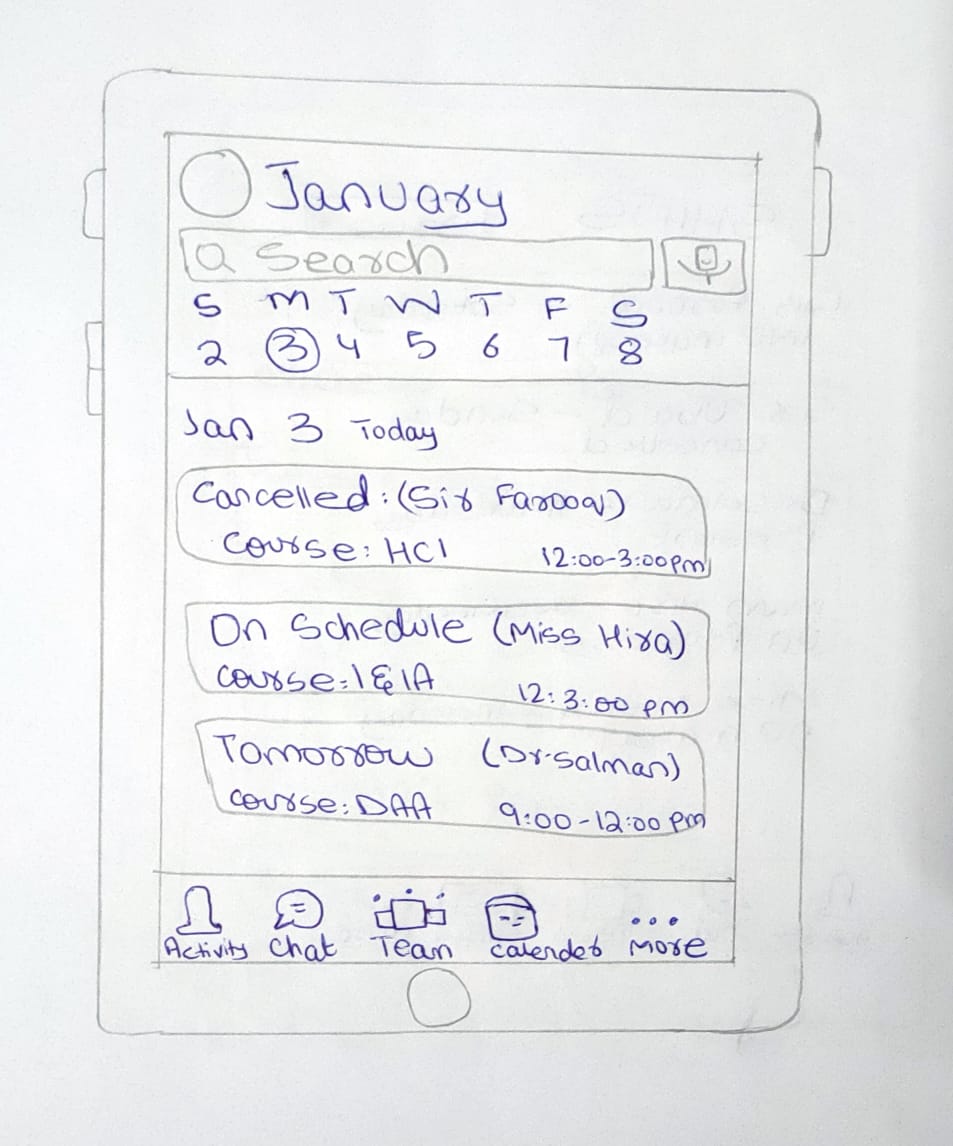 January
Search
S M T W T F S
2 3 4 5 6 7 8
Jan 3 Today
Cancelled: (Sir Farooq)
Course: HCI 12:00-3:00pm
On Schedule (Miss Hira)
Course: I & IA 12:3:00 pm
Tomorrow (Dr. Salman)
Course: DAA 9:00-12:00 pm
Activity Chat Team Calender More